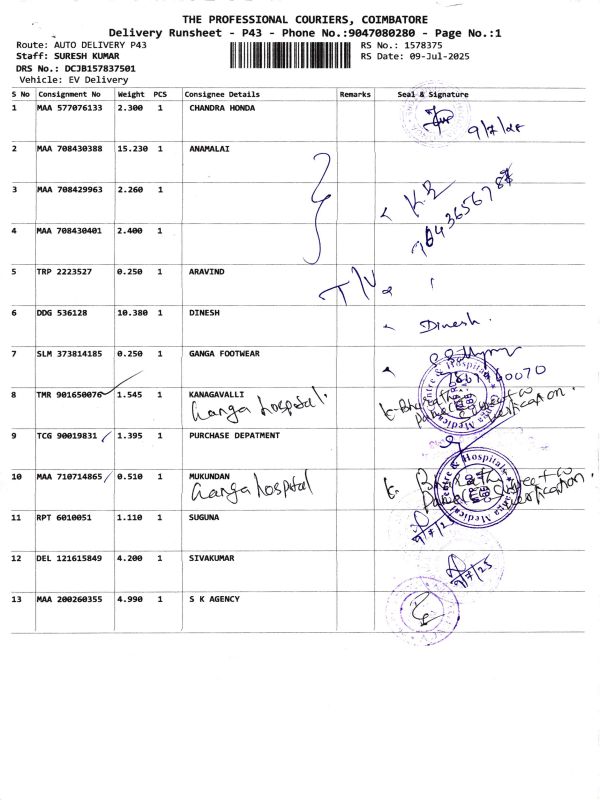 THE PROFESSIONAL COURIERS, COIMBATORE
Delivery Runsheet - P43 - Phone No.:9047080280 - Page No.:1
Route: AUTO DELIVERY P43
RS No.: 1578375
Staff: SURESH KUMAR
RS Date: 09-Jul-2025
DRS No.: DCJB157837501
Vehicle: EV Delivery
S No Consignment No Weight PCS Consignee Details Remarks Seal & Signature
1 MAA 577076133 2.300 1 CHANDRA HONDA
2 MAA 708430388 15.230 1 ANAMALAI
3 MAA 708429963 2.260 1
4 MAA 708430401 2.400 1
5 TRP 2223527 0.250 1 ARAVIND
6 DDG 536128 10.380 1 DINESH
Dinesh.
7 SLM 373814185 0.250 1 GANGA FOOTWEAR
8 TMR 901650076 1.545 1 KANAGAVALLI
Ganga hospital.
9 TCG 90019831 1.395 1 PURCHASE DEPATMENT
10 MAA 710714865 0.510 1 MUKUNDAN
Ganga hospital
Ganga Medical Centre & Hospitals
11 RPT 6010051 1.110 1 SUGUNA
9/7/25
12 DEL 121615849 4.200 1 SIVAKUMAR
9/7/25
13 MAA 200260355 4.990 1 S K AGENCY